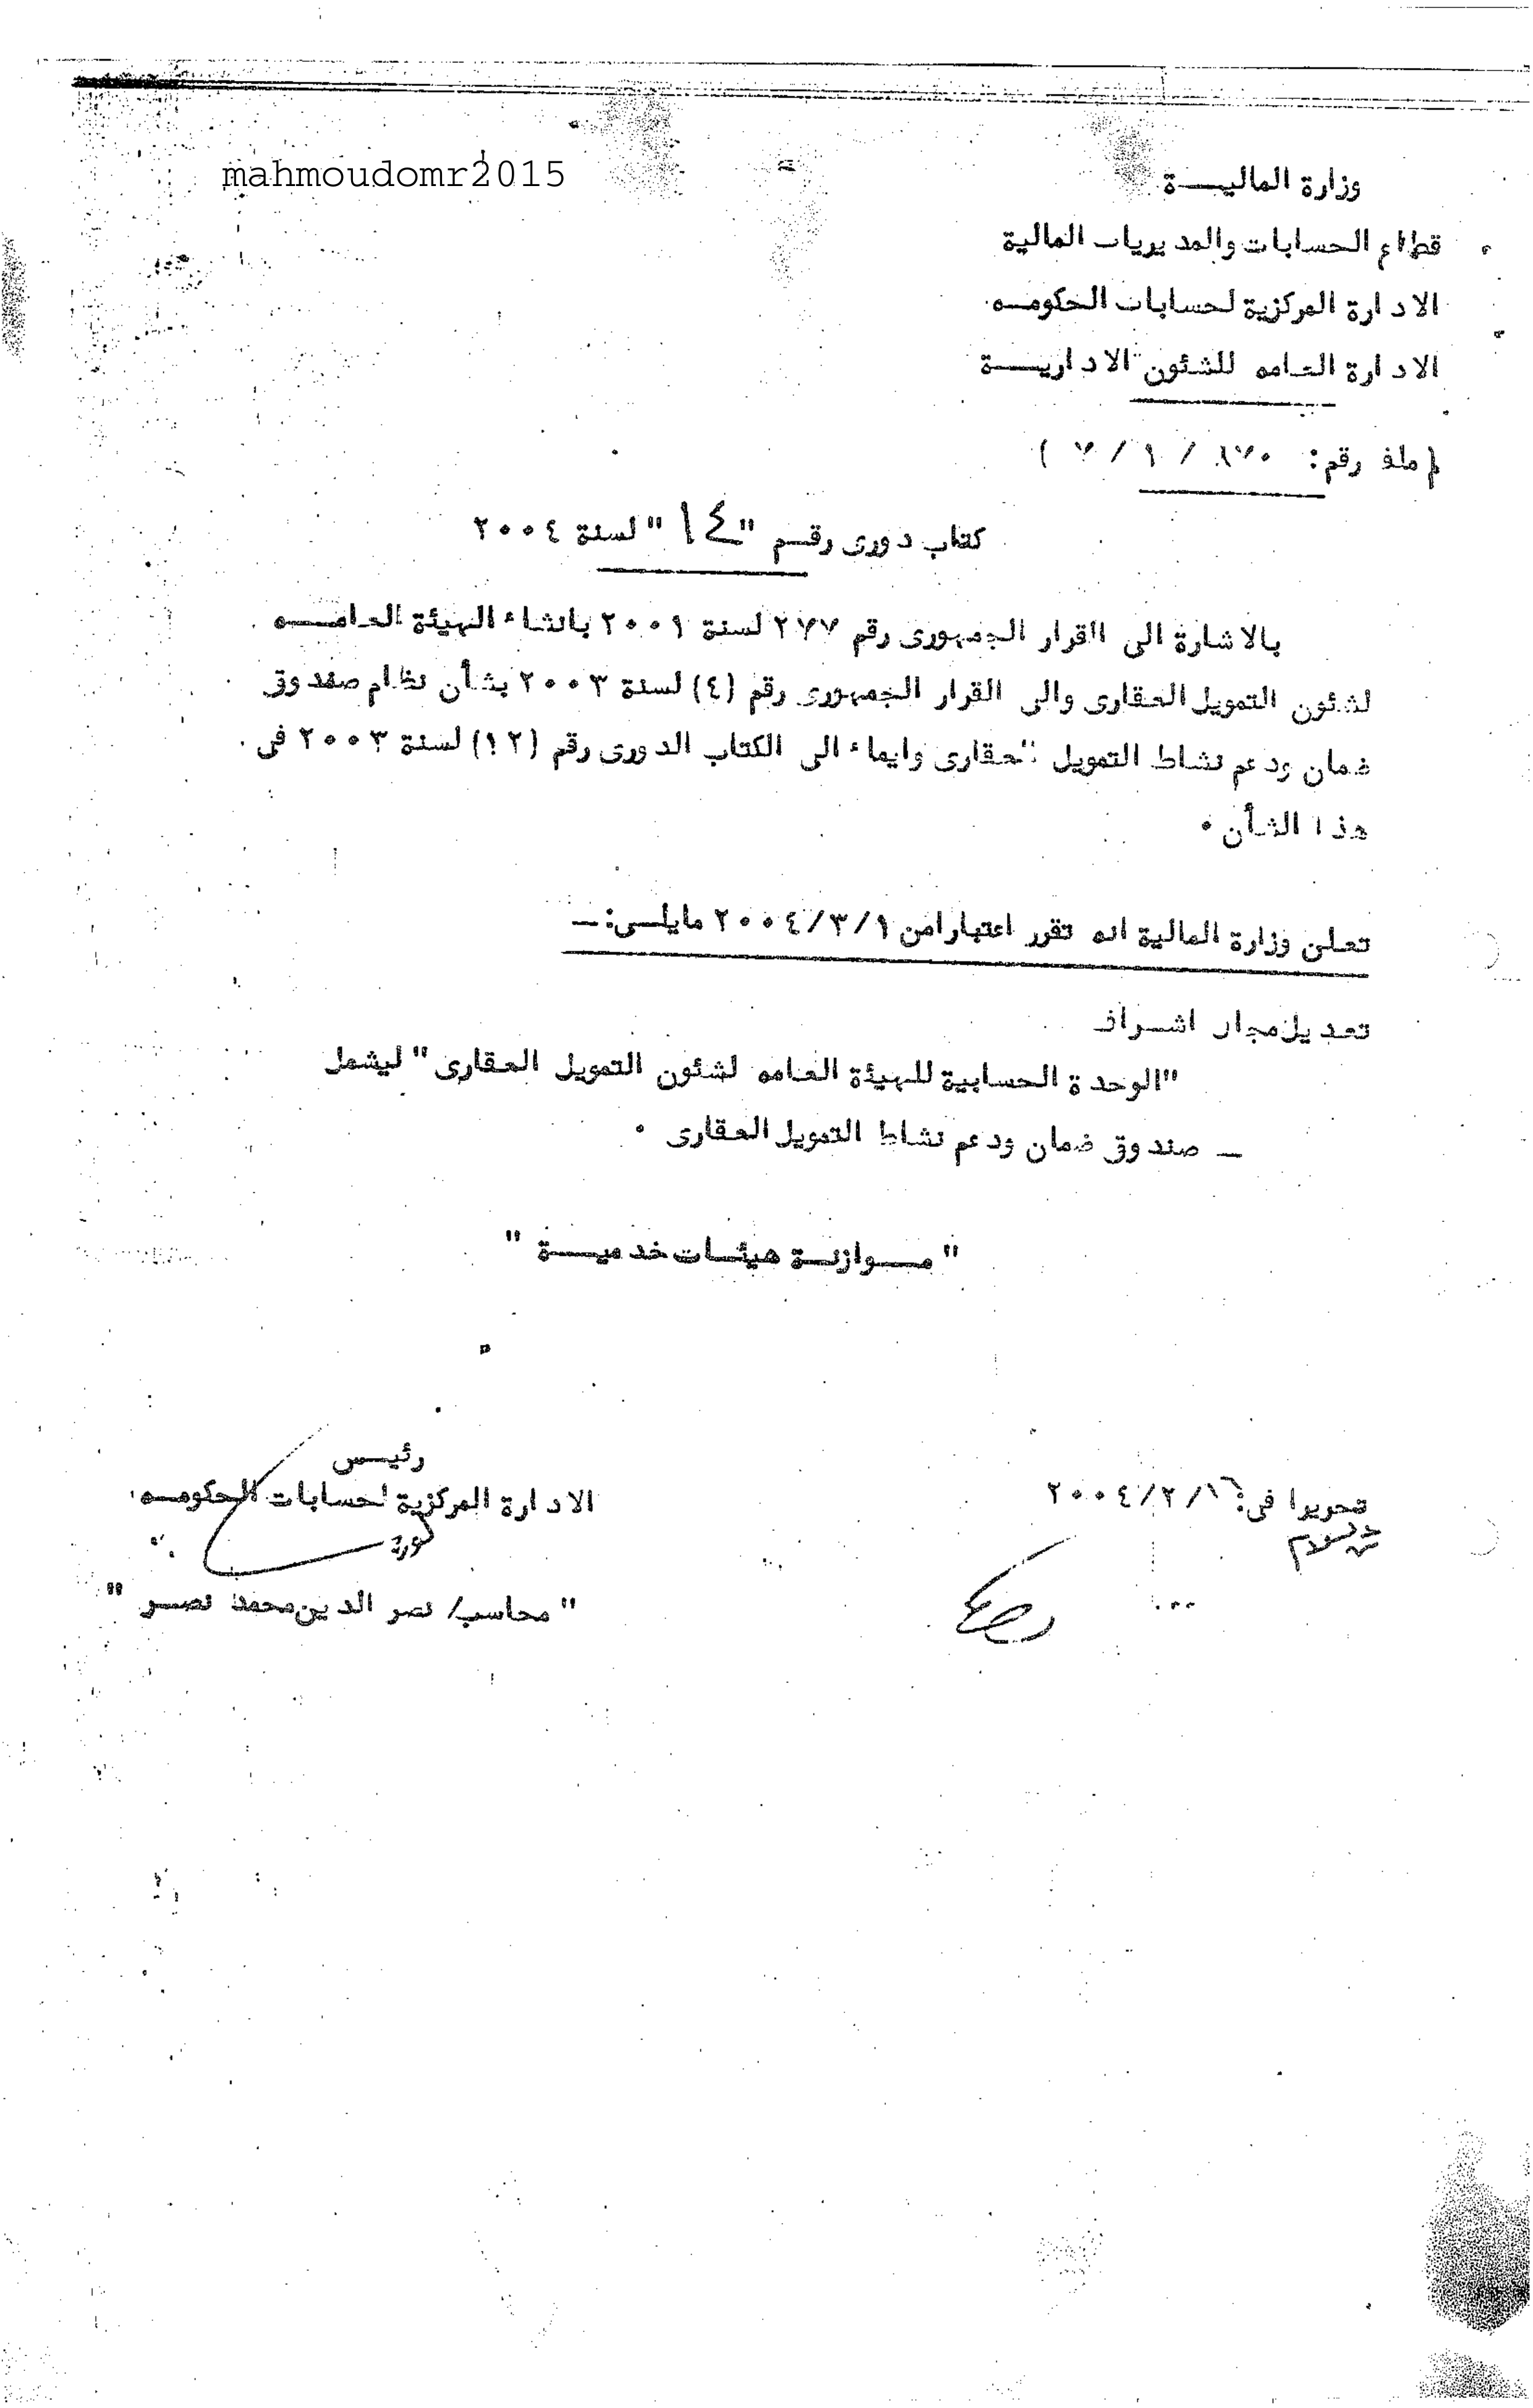 mahmoudomr2015
وزارة الماليـــة
قطاع الحسابات والمديريات المالية
الادارة المركزية لحسابات الحكومـه
الادارة العامه للشئون الاداريـــة
(ملف رقم:
كتاب دورى رقـم "١٤" لسنة ٢٠٠٤
بالاشارة الى القرار الجمهورى رقم ٢٧٧ لسنة ٢٠٠١ بانشاء الهيئة العامـــه
لشئون التمويل العقارى والى القرار الجمهورى رقم (٤) لسنة ٢٠٠٣ بشأن نظام صندوق
ضمان ودعم نشاط التمويل العقارى وايماء الى الكتاب الدورى رقم (١٢) لسنة ٢٠٠٣ فى
هذا الشأن ٠
تعلن وزارة المالية انه تقرر اعتبارا من ٢٠٠٤/٣/١ مايلـى: ــ
تعديل مجال اشـراف
"الوحدة الحسابية للهيئة العامه لشئون التمويل العقارى" ليشمل
ــ صندوق ضمان ودعم نشاط التمويل العقارى ٠
" مـــوازنــة هيئــات خدميـــة "
رئيــس
الادارة المركزية لحسابات الحكومـه
تحريرا فى: ٢٠٠٤/٢/١٦
" محاسب/ نصر الدين محمد نصــر "